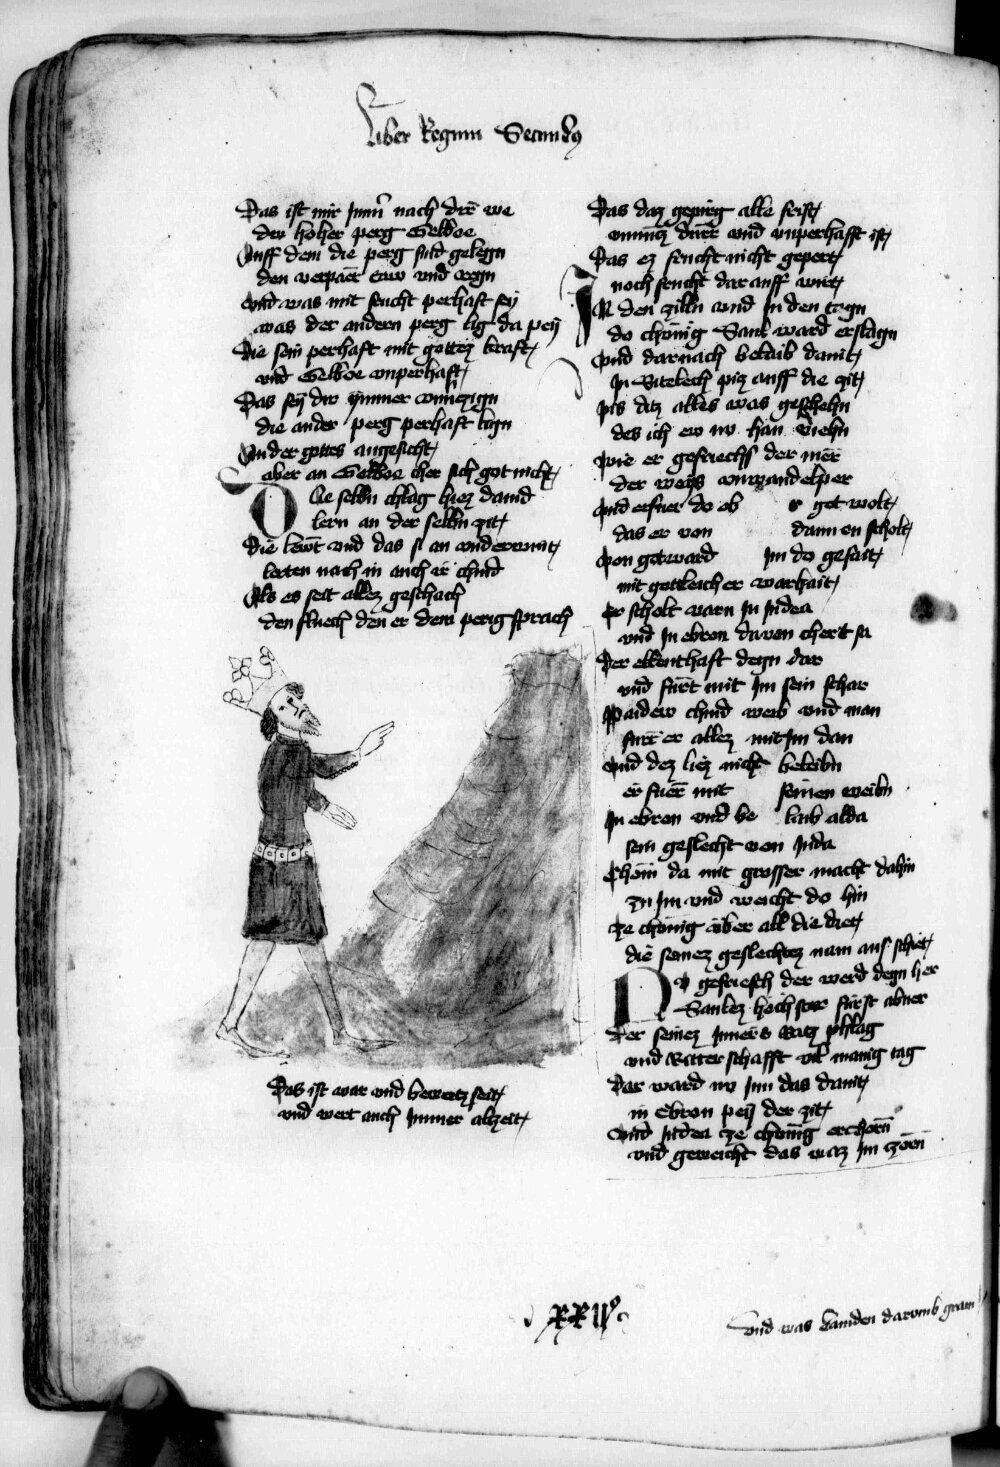 Liber Regum Secundus
Das ist mir Immer nach dir we
du hoher perg Gelboe
Auff dem die perg sind gelegn
den verpaer taw und regn
und was mit frucht perhaft sey
was der andern perg lig da pey
die sein perhaft mit gottez kraft
und Gelboe unperhaft
Das sey dir ymmer
die ander perg perhaft lign
Under gottes angesicht
aber an Gelboe cher sich got nicht
Die selbn chlag hiez dauid
lern an der selbn zit
die lewt und das si an underwint
lerten nach in auch ir chind
Als es seit allez geschach
den fluech den er dem perig sprach
Das ist war und bewert seit
und wert auch Immer alzeit
Das daz gepirg alle frist
durr und unperhafft ist
Das ez frucht nicht gepert
noch frucht dar auff wirt
In den ziln und In den tagn
do chönig Saul ward erslagn
und darnach belaib dauit
In Sicelech piz auff die zit
pis ditz alles was geschehn
des ich ew nv han
wie er gefriechs der mer
der weys
und erfuer do ob s got wolt
das er von dannen scholt
von got ward Im do gesait
mit gottleicher warhait
er scholt varn In Iudea
und In ebron davon chert sa
der ellenthaft degn dar
und fürt mit Im sein schar
paidew chind weib und man
fürt er allez mit Im dan
und dez liez nicht beleibn
er fuer mit seinen weibn
In ebron und be laib alda
sein geslecht von Iuda
Chom da mit grosser macht dahin
zu Im und weicht do hin
ze chönig über all die diet
die seinez geslechtez nam aus schiet
Do gefriesch der werd degn her
Saulez hochster fürst abner
der seinez Inners ratz phlag
und Ritterschafft vil manig tag
dar ward nv Inn das dauit
in Ebron pey der zit
und Iudea ze chönig erchorn
und geweicht das waz im zorn
XXII
und was dauiden darumb gram